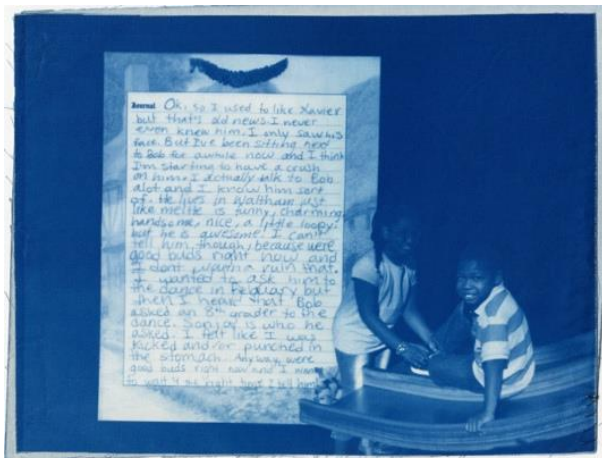 Journal Ok, so I used to like Xavier
but that's old news. I never
even knew him. I only saw his
face. But I've been sitting next
to Bob for awhile now and I think
I'm starting to have a crush
on him. I actually talk to Bob
alot and I know him sort
of. He lives in Waltham just
like me. He is funny, charming,
handsome, nice, a little loopy.
but he is awesome. I can't
tell him, though, because were
good buds right now and
I don't wanna ruin that.
I wanted to ask him to
the dance in Febuary but
then I heard that Bob
asked an 8th grader to the
dance. is who he
asked. I felt like I was
kicked and/or punched in
the stomach. Anyway, were
good buds right now and I
to wait 4 the right time I tell him